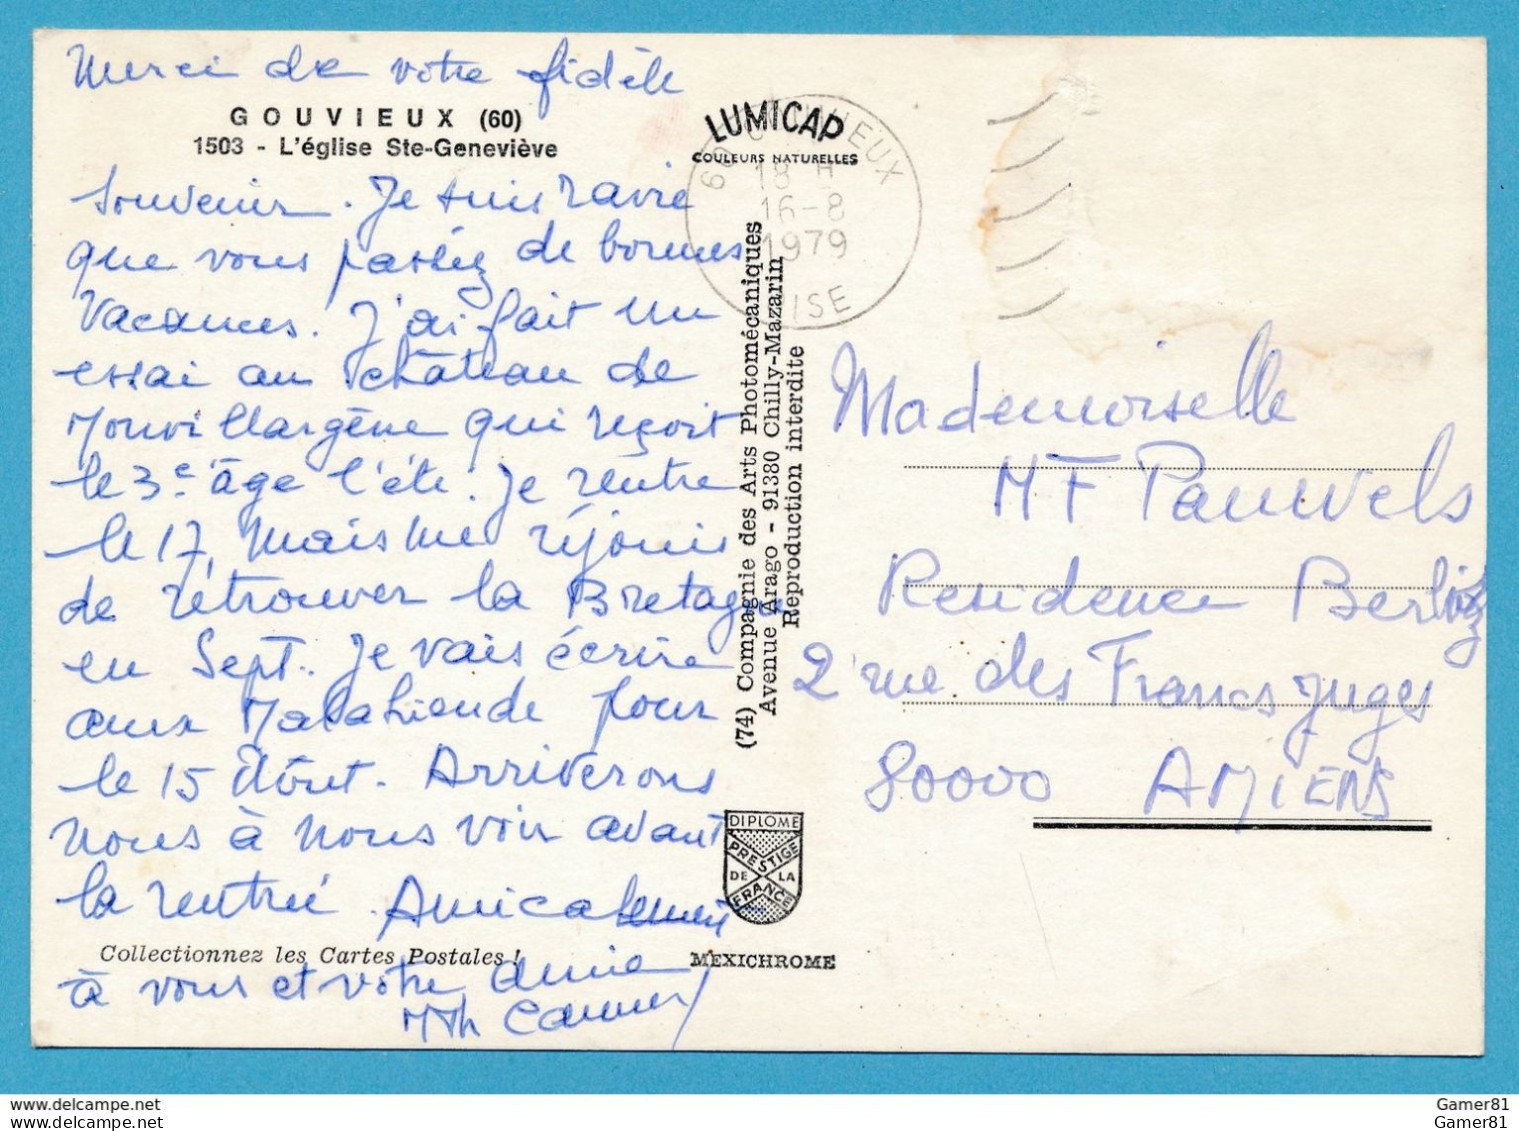 Merci de votre fidèle
GOUVIEUX (60)
1503 - L'église Ste-Geneviève
souvenir. Je suis ravie
que vous passéz de bonnes
vacances. J'ai fait un
essai au château de
Montvillargène qui reçoit
le 3e âge l'été. Je rentre
le 17, mais me réjouis
de rétrouver la Bretagne
en Sept. Je vais écrire
aux pour
le 15 Aôut. Arriverons
nous à nous voir avant
la rentrée. Amicalement
Collectionnez les Cartes Postales !
à vous et votre amie
MTh
LUMICAP
COULEURS NATURELLES
60 GOUVIEUX
18 H
16-8
1979
OISE
(74) Compagnie des Arts Photomécaniques
Avenue Arago - 91380 Chilly-Mazarin
Reproduction interdite
DIPLOME
PRESTIGE
DE LA
FRANCE
MEXICHROME
Mademoiselle
MF Pauwels
Residence Berlioz
2 rue des Francs Juges
80000 AMIENS
delcampe.net
Gamer81
delcampe.net
Gamer81